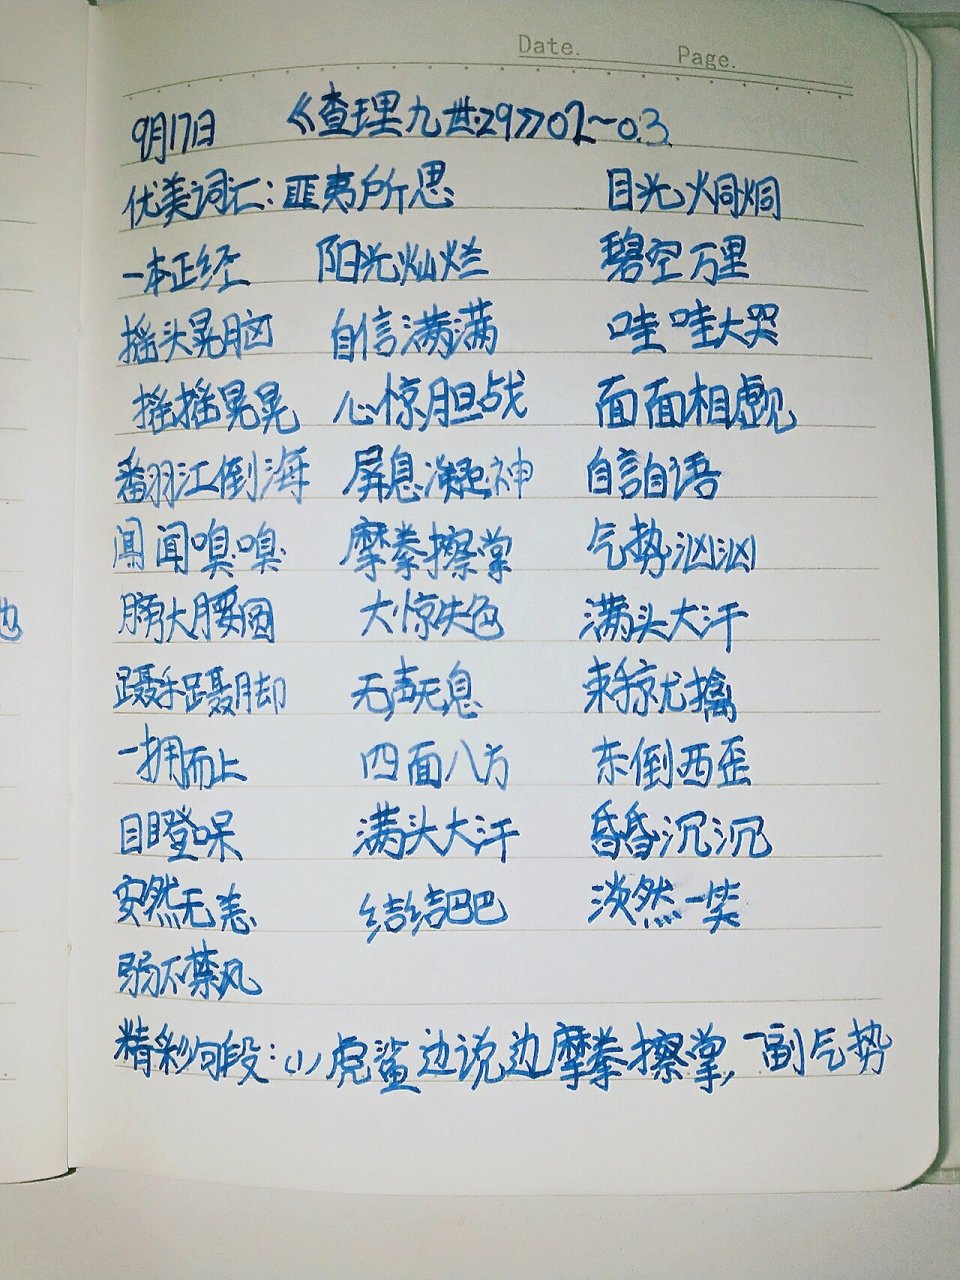 Date. Page.
9月17日 《查理九世:29》02~03
优美词汇:匪夷所思 目光炯炯
一本正经 阳光灿烂 碧空万里
摇头晃脑 自信满满 哇哇大哭
摇摇晃晃 心惊胆战 面面相觑
翻江倒海 屏息凝神 自言自语
闻闻嗅嗅 摩拳擦掌 气势汹汹
膀大腰圆 大惊失色 满头大汗
蹑手蹑脚 无声无息 束手就擒
一拥而上 四面八方 东倒西歪
目瞪口呆 满头大汗 昏昏沉沉
安然无恙 结结巴巴 淡然一笑
弱不禁风
精彩句段:(1)虎鲨边说边摩拳擦掌,一副气势